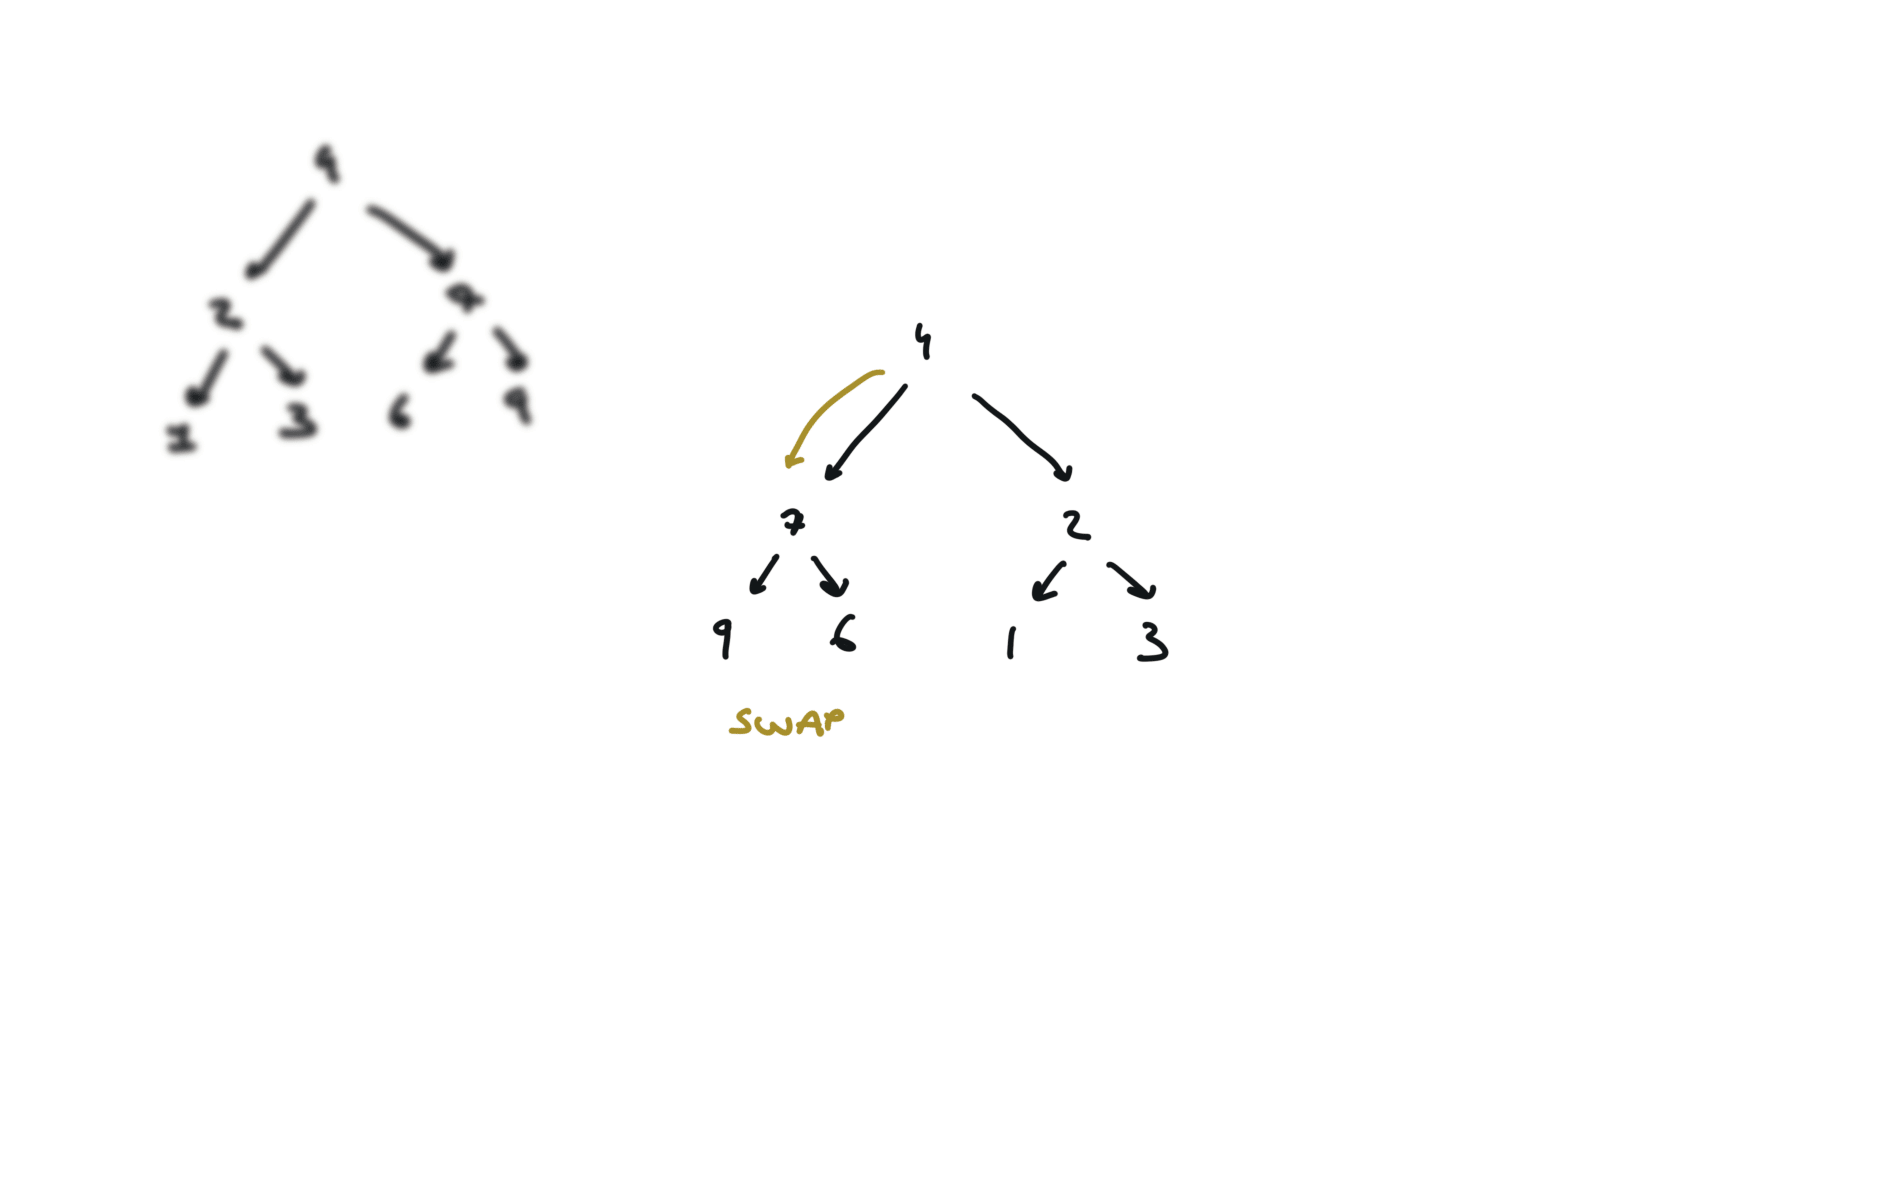 4
2
1 3 6 9
4
7 2
9 6 1 3
SWAP